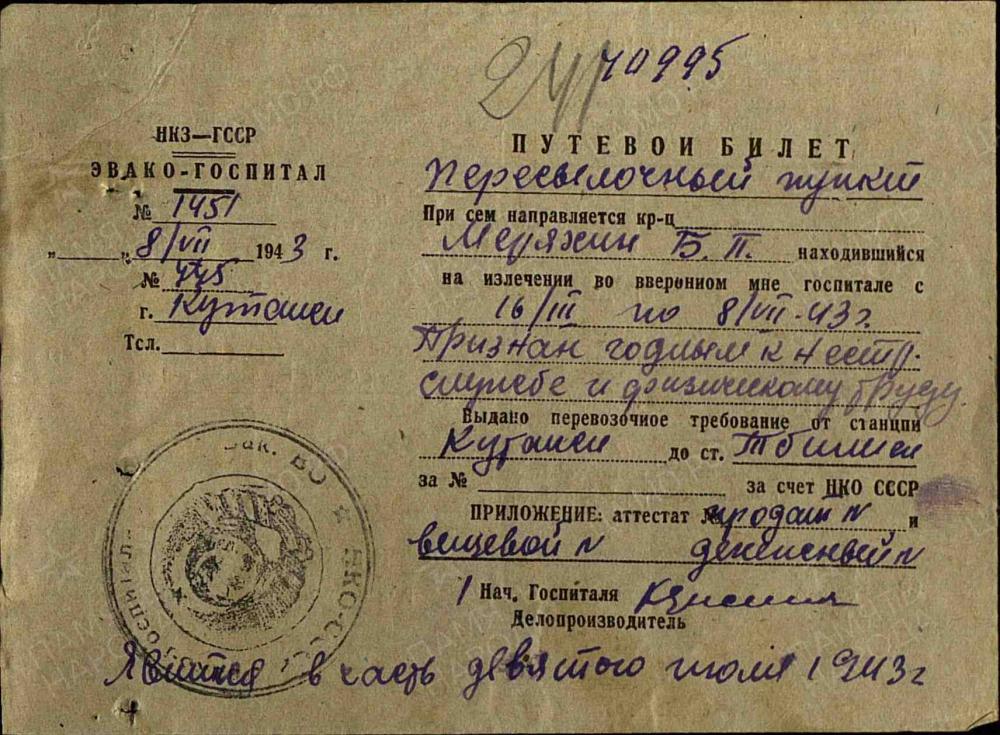 70995
НКЗ—ГССР
ЭВАКО-ГОСПИТАЛ
№ 1451
„ „ 8/VII 1943 г.
№ 445
г. Кутаиси
Тсл.
ПУТЕВОИ БИЛЕТ
Пересылочный пункт
При сем направляется кр-ц
Меряхин Б. П. находившийся
на излечении во вверенном мне госпитале с
16/III по 8/VII-43 г.
Признан годным к нестр.
службе и физическому труду
Выдано перевозочное требование от станции
Кутаиси до ст. Тбилиси
за № за счет НКО СССР
ПРИЛОЖЕНИЕ: аттестат № прод и
вещевой № денежный №
Нач. Госпиталя
Делопроизводитель
Явится в часть девятого июля 1943 г